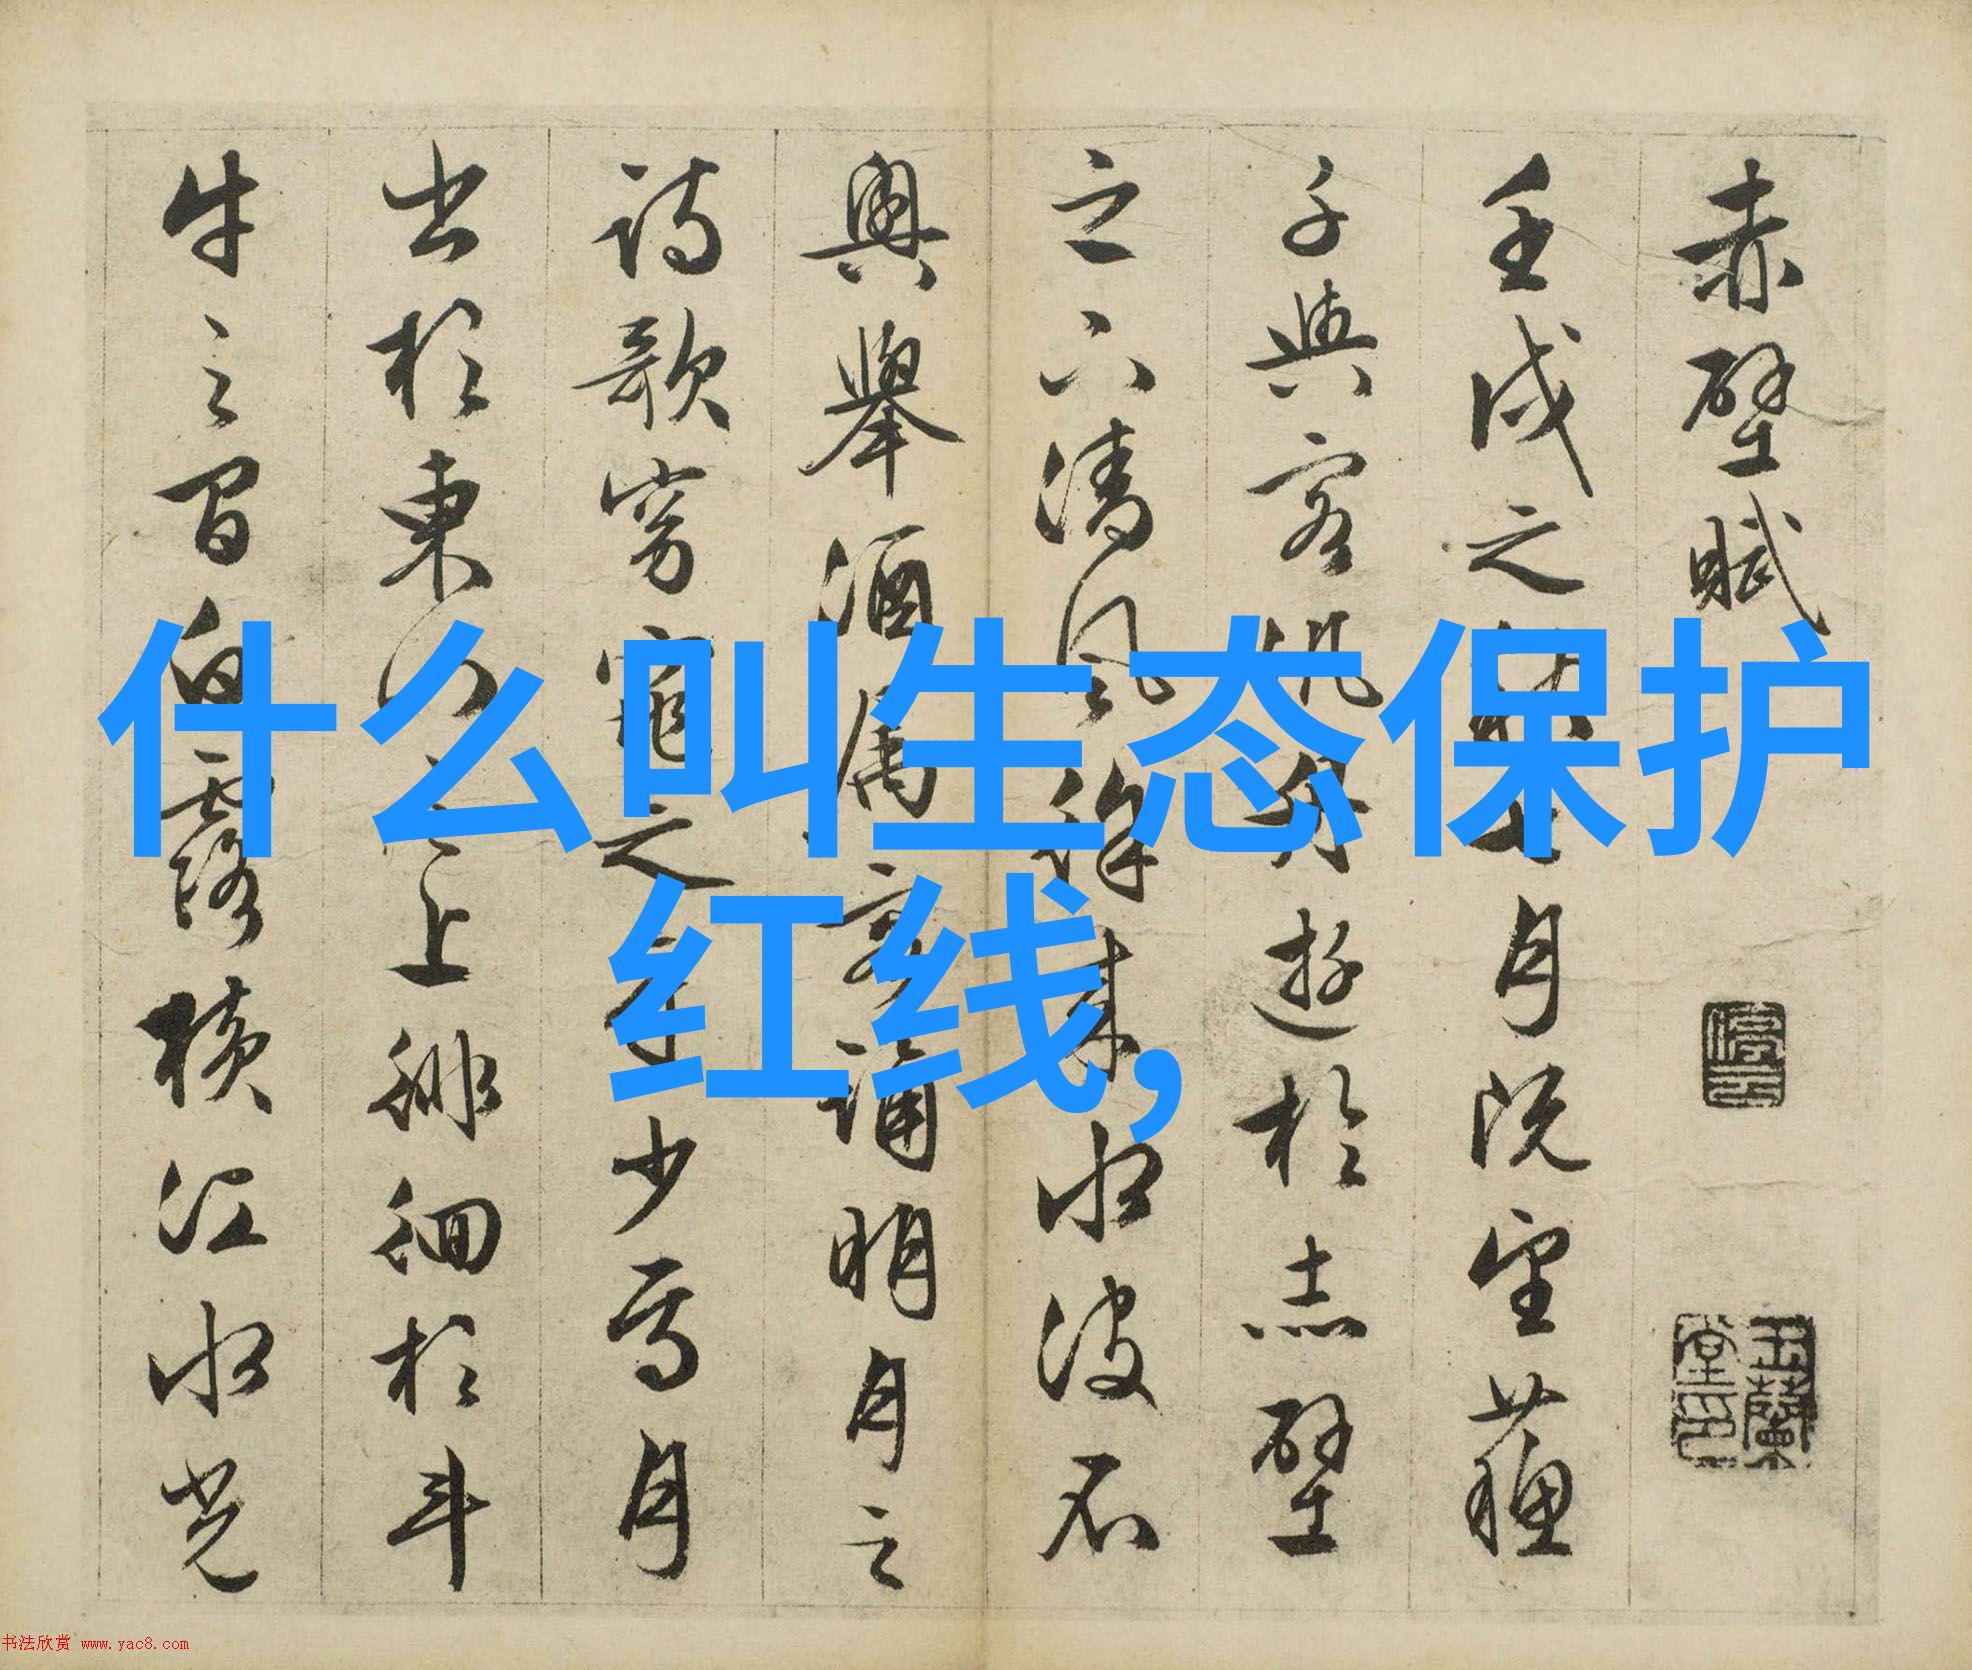 什么叫生态保护
红线,
赤壁賦
壬戌之秋七月既望蘓
子與客汎舟遊於赤壁
之下清風徐来水波不
興舉酒属客誦明月之
詩歌窈窕之章少焉月
出於東山之上徘徊於斗
牛之間白露横江水光
玉蘭堂印
书法欣赏 www.yac8.com